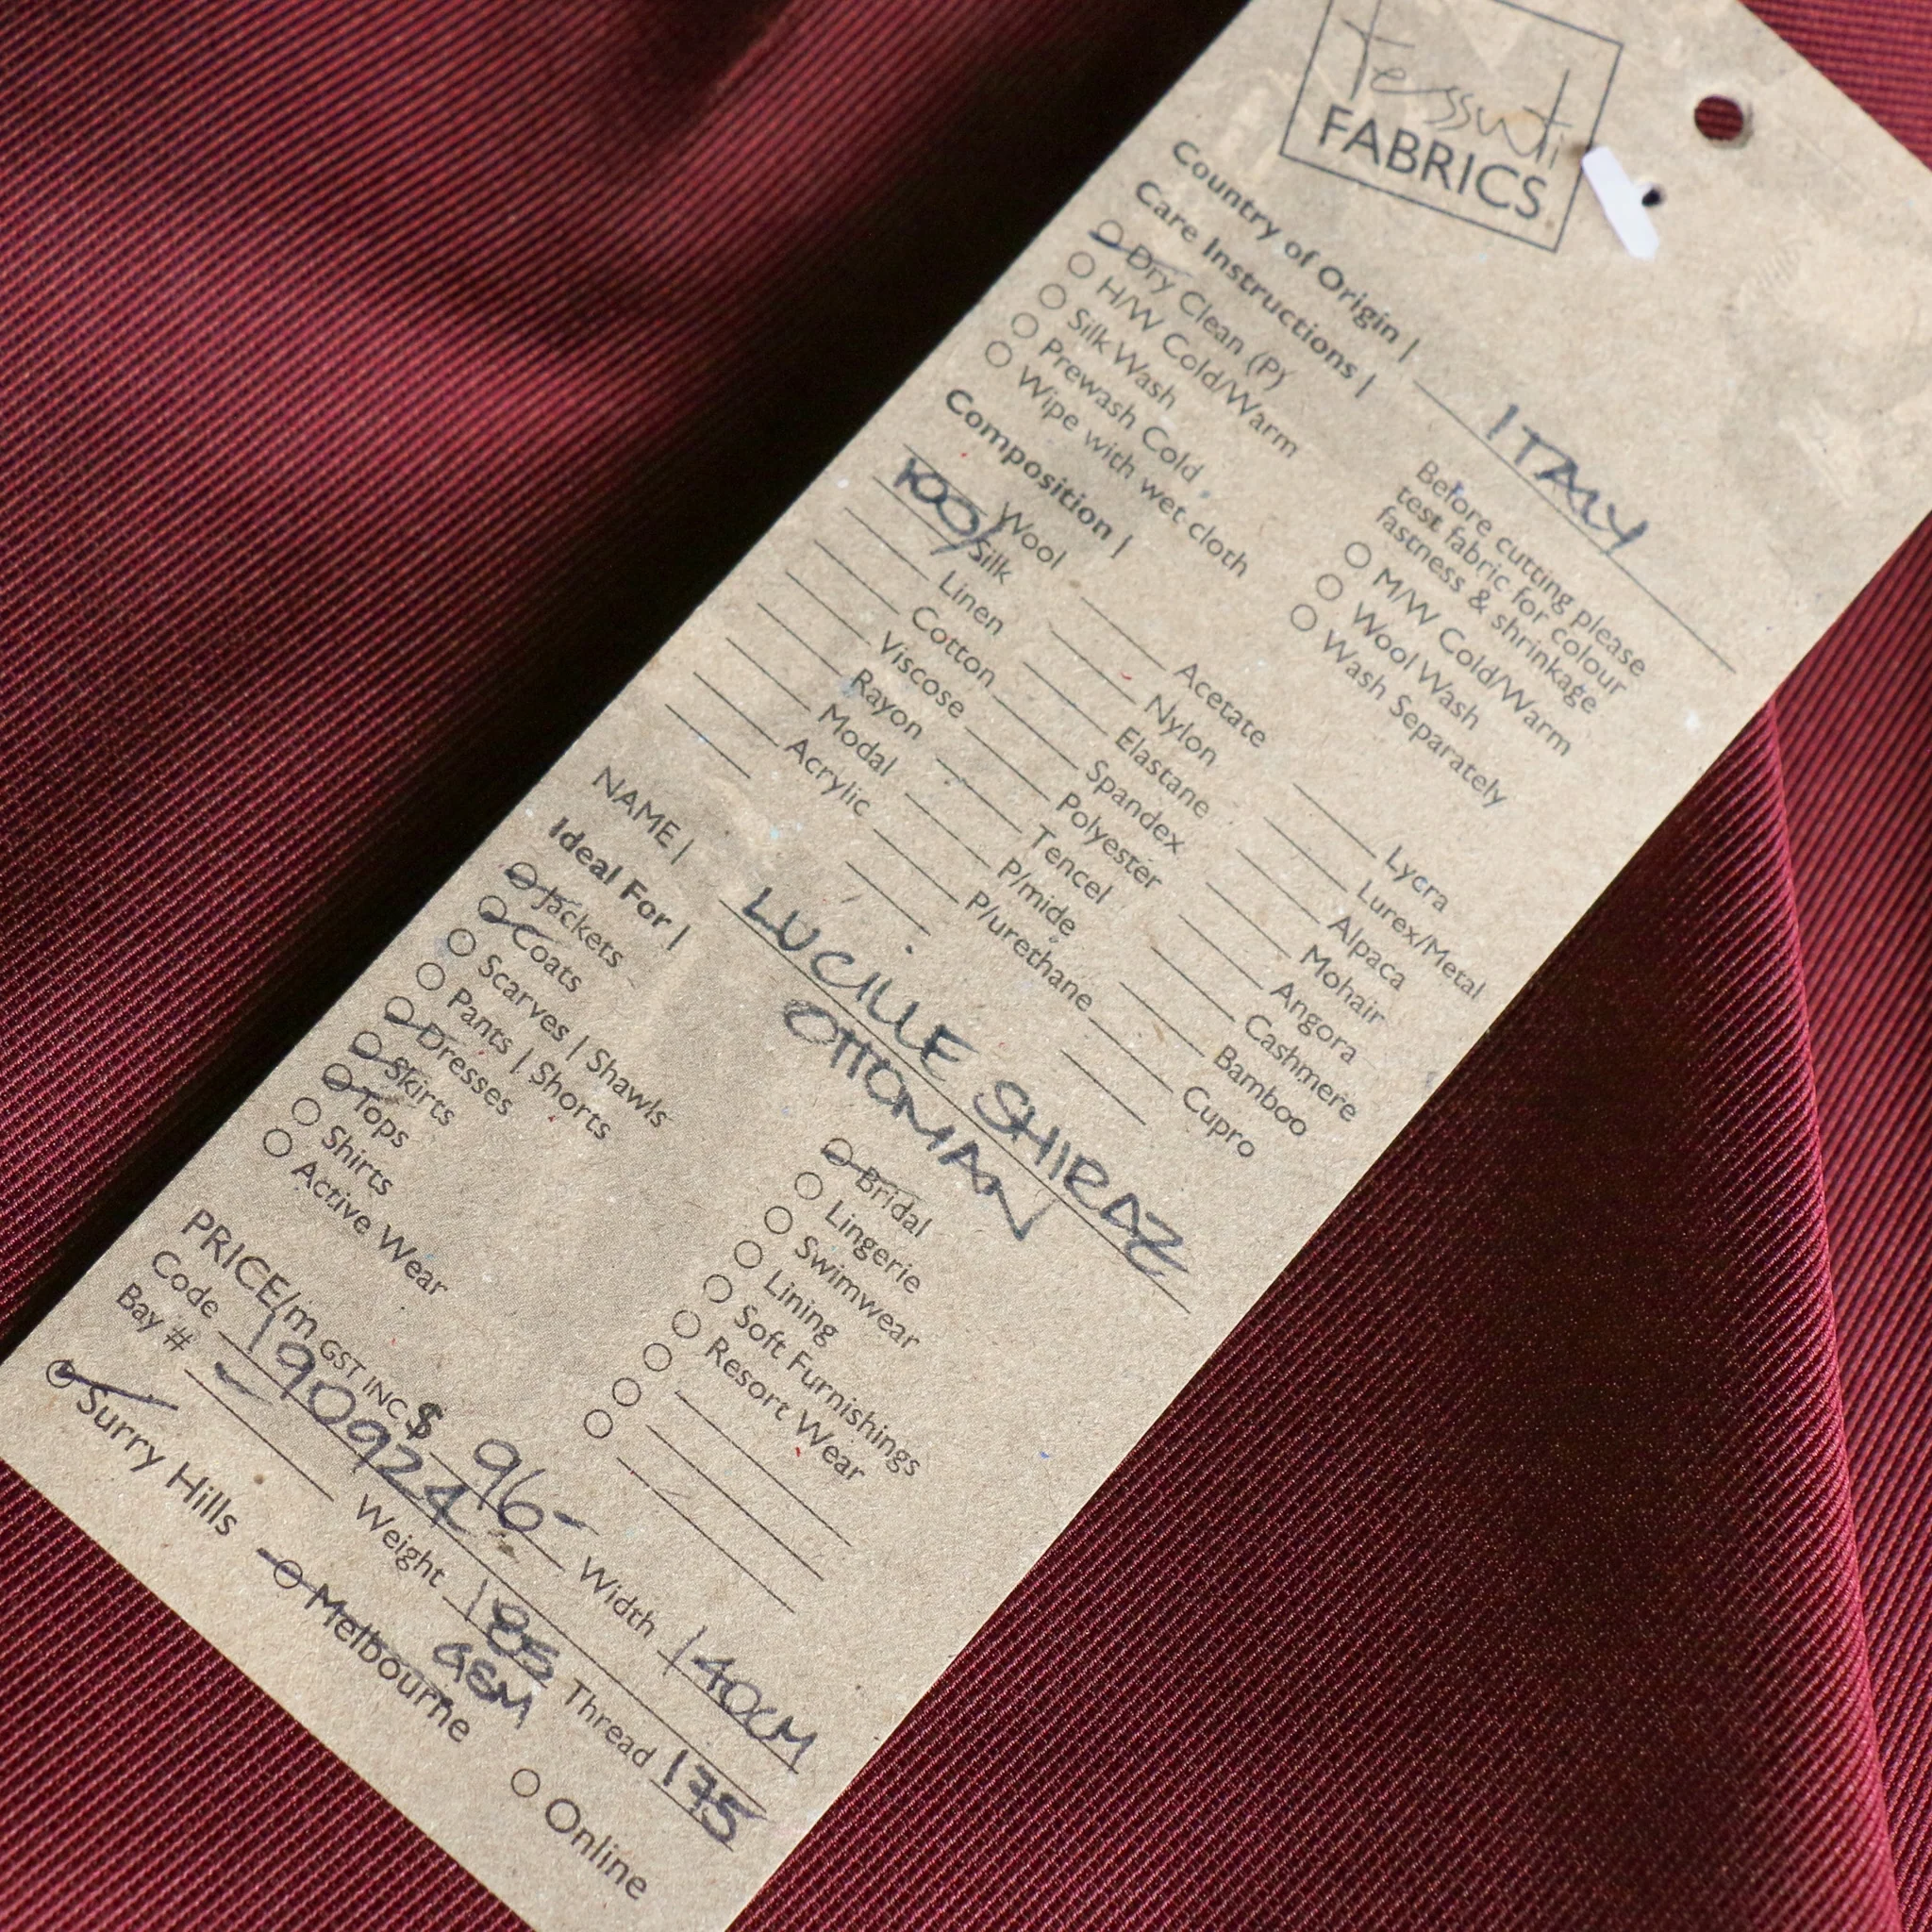 tessuti
FABRICS
Country of Origin | ITALY
Care Instructions |
Dry Clean (P)
H/W Cold/Warm
Silk Wash
Prewash Cold
Wipe with wet cloth
Before cutting please
test fabric for colour
fastness & shrinkage
M/W Cold/Warm
Wool Wash
Wash Separately
Composition |
Wool
100% Silk
Linen
Cotton
Viscose
Rayon
Modal
Acrylic
Acetate
Nylon
Elastane
Spandex
Polyester
Tencel
P/mide
P/urethane
Lycra
Lurex/Metal
Alpaca
Mohair
Angora
Cashmere
Bamboo
Cupro
NAME | LUCILLE SHIRAZ
OTTOMAN
Ideal For |
Jackets
Coats
Scarves | Shawls
Pants | Shorts
Dresses
Skirts
Tops
Shirts
Active Wear
Bridal
Lingerie
Swimwear
Lining
Soft Furnishings
Resort Wear
PRICE/m GST INC $ 96- Width 140CM
Code 190924 Weight 185 GSM Thread 175
Bay # -
Surry Hills
Melbourne
Online